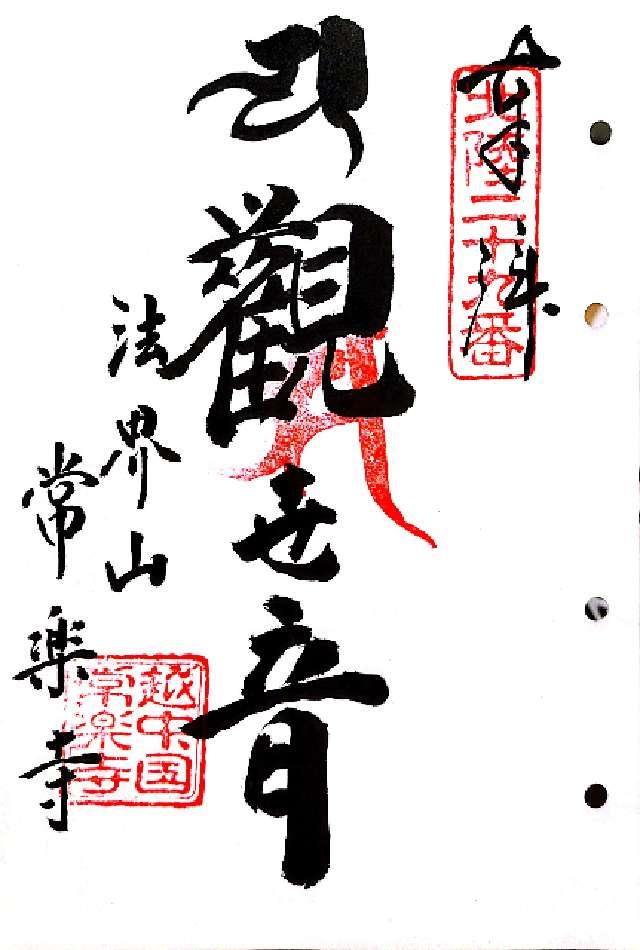 奉拝
北陸二十九番
観世音
法界山
常楽寺
越中国
常楽寺